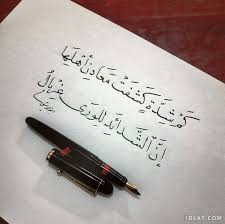 كَمْ شِدَّةٍ كَشَفَتْ مَعَادِنَ أَهْلِهَا
إِنَّ الشَّدَائِدَ لِلْوَرَى غِرْبَالُ
IDLAT.COM